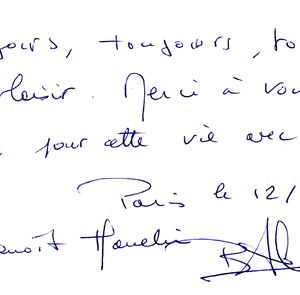 jours, toujours, to
plaisir. Merci à vou
, pour cette vie avec
Paris le 12/
enoît